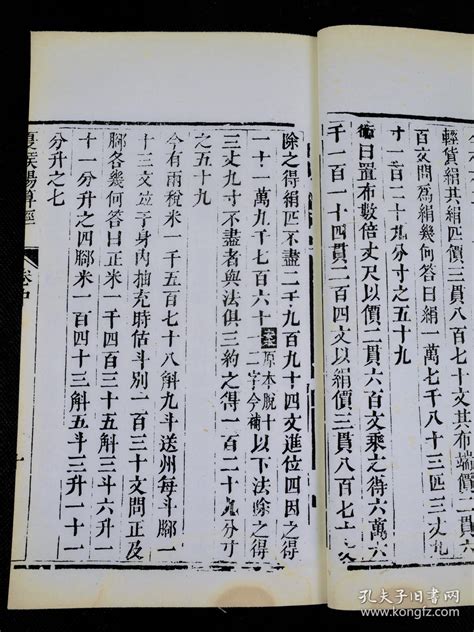 輕貨絹其絹匹三貫八百七十文其布端價一貫六
百文問爲絹幾何答曰絹一萬七千八十三匹三丈
寸一百二十九分寸之五十九
術曰置布數倍丈尺以價二貫六百文乘之得六萬六
千一百一十四貫二百四文以絹價三貫八百七十
除之得絹匹不盡二千九百九十四文進位四因之得
一十一萬九千七百六十原本脫十一二字今補以下法除之得
三丈九寸不盡者與法俱三約之得一百二十九分寸
之五十九
今有兩稅米一千五百七十八斛九斗送州每斗腳一
十三文並于身內抽充時估斗別一百三十文問正及
腳各幾何答曰正米一千四百三十五斛三斗六升一
十一分升之四腳米一百四十三斛五斗三升一十一
分升之七
夏侯陽算經
卷中
孔夫子旧书网
www.kongfz.com